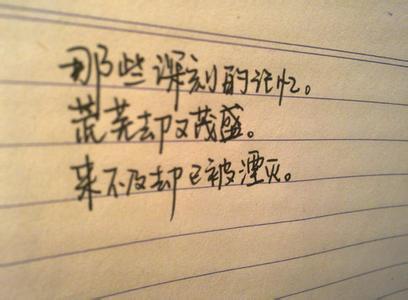 那些深刻的记忆。
荒芜却又茂盛。
来不及却已被湮灭。